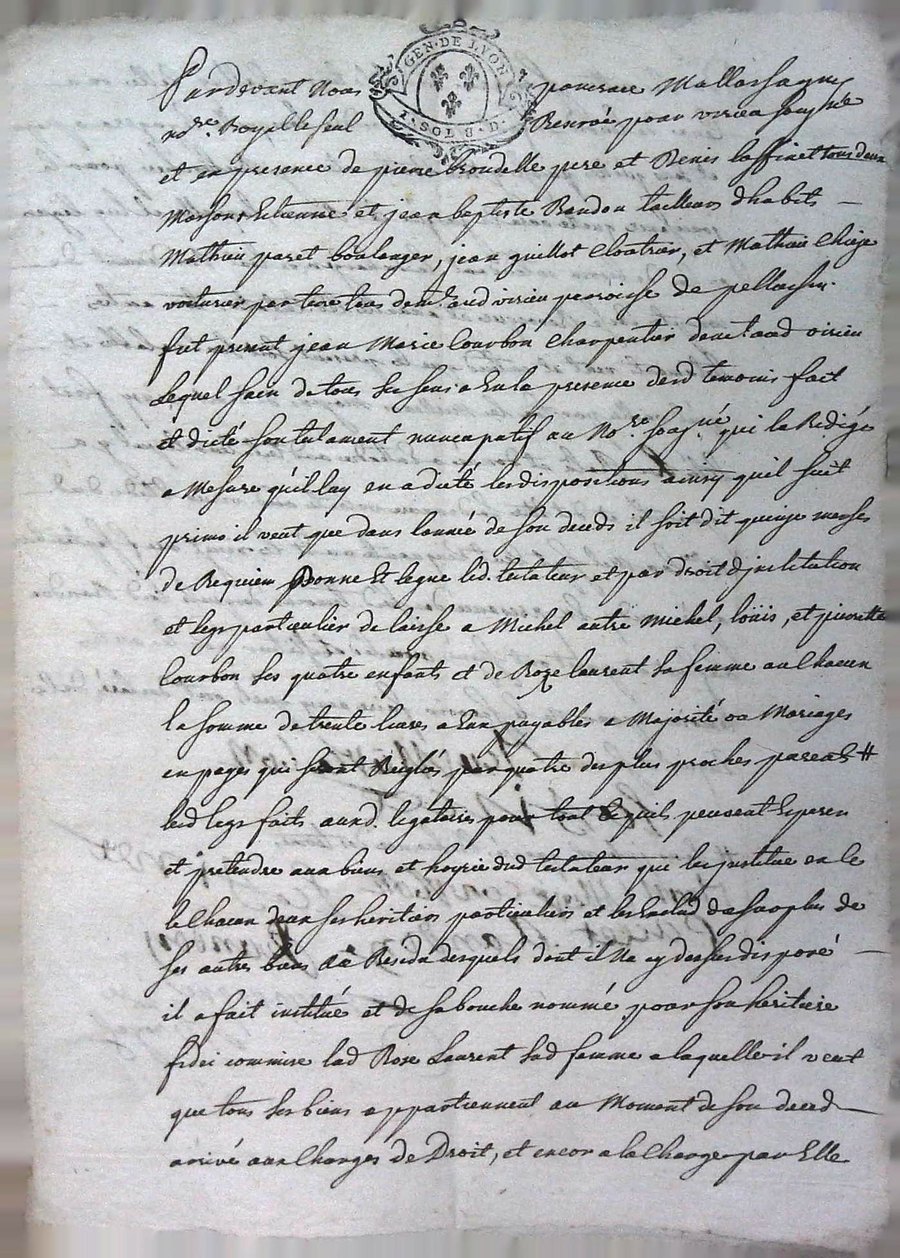 GEN·DE LYON
1·SOL 8·D·
Pardevant Nous pancrace Mallassagny
no.re Royal le seul Benévé pour virieu soug.né
et en presence de pierre brondelle pere et Benis laffinet tous deux
Massons Etienne et jean baptiste Bandon tailleurs dhabits
Mathieu paret boulanger, jean guillot Cloutrier, et Mathieu Chieze
voiturier par terre tous dem.t aud virieu parroisse de pellassin.
fut present jean Marie Courbon Charpentier demeurant aud virieu
Lequel sain de tous ses sens a En la presence desd temoins fait
et dicté son testament nuncupatif au No.re soug.né qui la Redigé
a Mesure quil luy en a dicté les dispositions ainsy quil suit
primo il veut que dans lannée de son deceds il soit dit quinze messes
de Requiem Donne Et legue led. testateur et par droit dinstitution
et legs particulier delaisse a Michel autre Michel, loüis, et pierrette
Courbon ses quatre enfants et de Roze laurent sa femme a un Chacun
la somme de trente livres a Eux payables a Majorité ou Mariages
en pages qui seront Reiglés par quatre des plus proches parents #
lesd legs faits auxd. legataires pour tout ce quils peuvent Esperer
et pretendre aux biens et hoyrie dud testateur qui les jnstitue en ce
le Chacun deux ses heritiers particuliers et les Exclud du surplus de
ses autres biens au Residu desquels dont il Na cy dessus disposé
il a fait institué et de sa bouche nommé pour son heritiere
fidei commise lad Rose Laurent sad femme a laquelle il veut
que tous ses biens appartiennent au Moment de son deced
arrivé aux Charges de Droit, et encor a la Charge par Elle